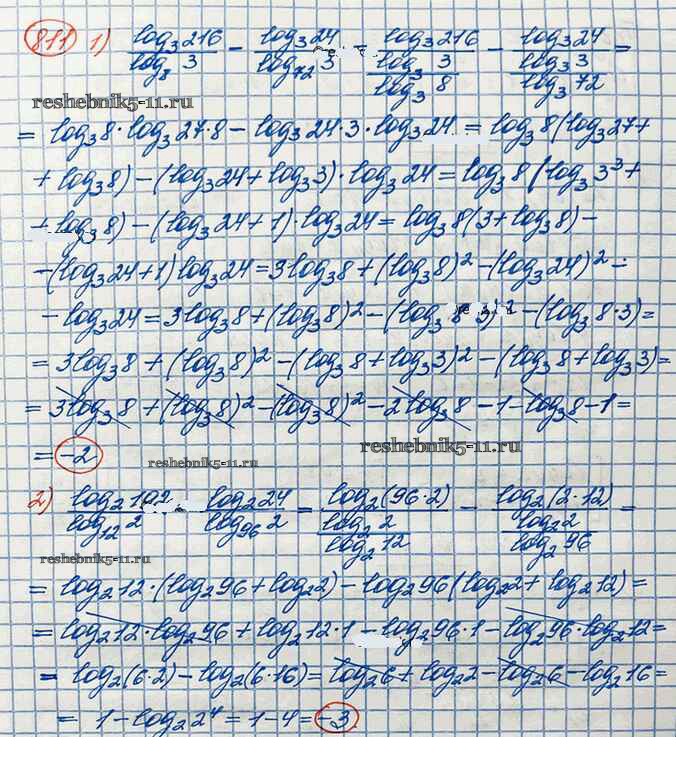 811 1) log₃216/log₈3 − log₃24/log₇₂3 = log₃216/(log₃3/log₃8) − log₃24/(log₃3/log₃72) =
reshebnik5-11.ru
= log₃8·log₃27·8 − log₃24·3·log₃24 = log₃8(log₃27+
+ log₃8) − (log₃24 + log₃3)·log₃24 = log₃8(log₃3³+
+ log₃8) − (log₃24 + 1)·log₃24 = log₃8(3 + log₃8) −
− (log₃24 + 1)log₃24 = 3log₃8 + (log₃8)² − (log₃24)² −
− log₃24 = 3log₃8 + (log₃8)² − (log₃8·3)² − (log₃8·3) =
= 3log₃8 + (log₃8)² − (log₃8 + log₃3)² − (log₃8 + log₃3) =
= 3log₃8 + (log₃8)² − (log₃8)² − 2log₃8 − 1 − log₃8 − 1 =
reshebnik5-11.ru
= −2
reshebnik5-11.ru
2) log₂192/log₁₂2 − log₂24/log₉₆2 = log₂(96·2)/(log₂2/log₂12) − log₂(2·12)/(log₂2/log₂96) =
reshebnik5-11.ru
= log₂12·(log₂96 + log₂2) − log₂96(log₂2 + log₂12) =
= log₂12·log₂96 + log₂12·1 − log₂96·1 − log₂96·log₂12 =
= log₂(6·2) − log₂(6·16) = log₂6 + log₂2 − log₂6 − log₂16 =
= 1 − log₂2⁴ = 1 − 4 = −3